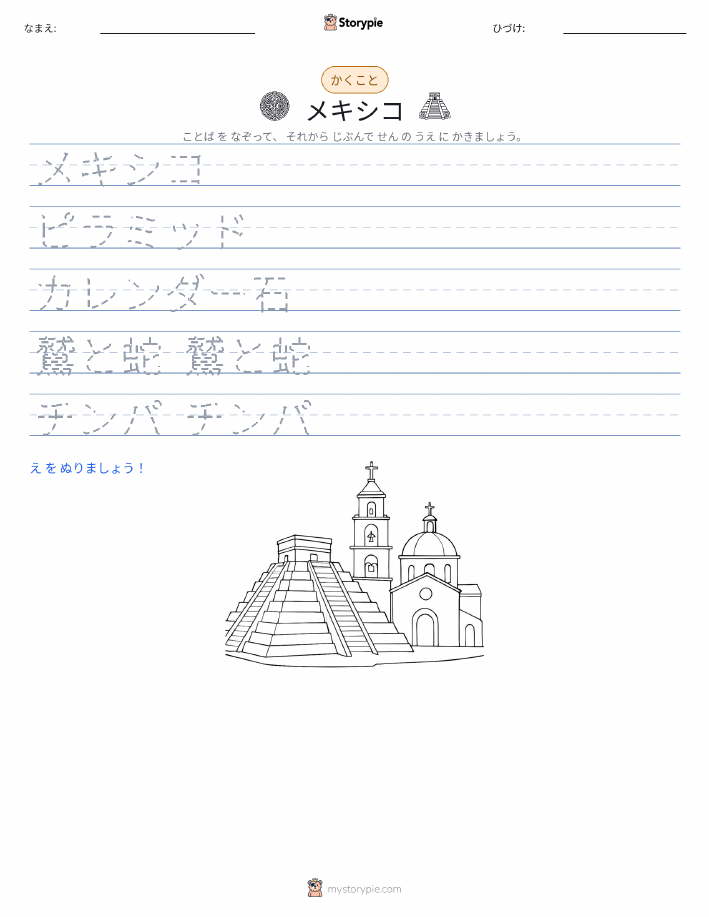 なまえ:
Storypie
ひづけ:
かくこと
メキシコ
ことば を なぞって、 それから じぶんで せん の うえ に かきましょう。
メキシコ
ピラミッド
カレンダー石
鷲と蛇 鷲と蛇
チンパ チンパ
え を ぬりましょう！
mystorypie.com